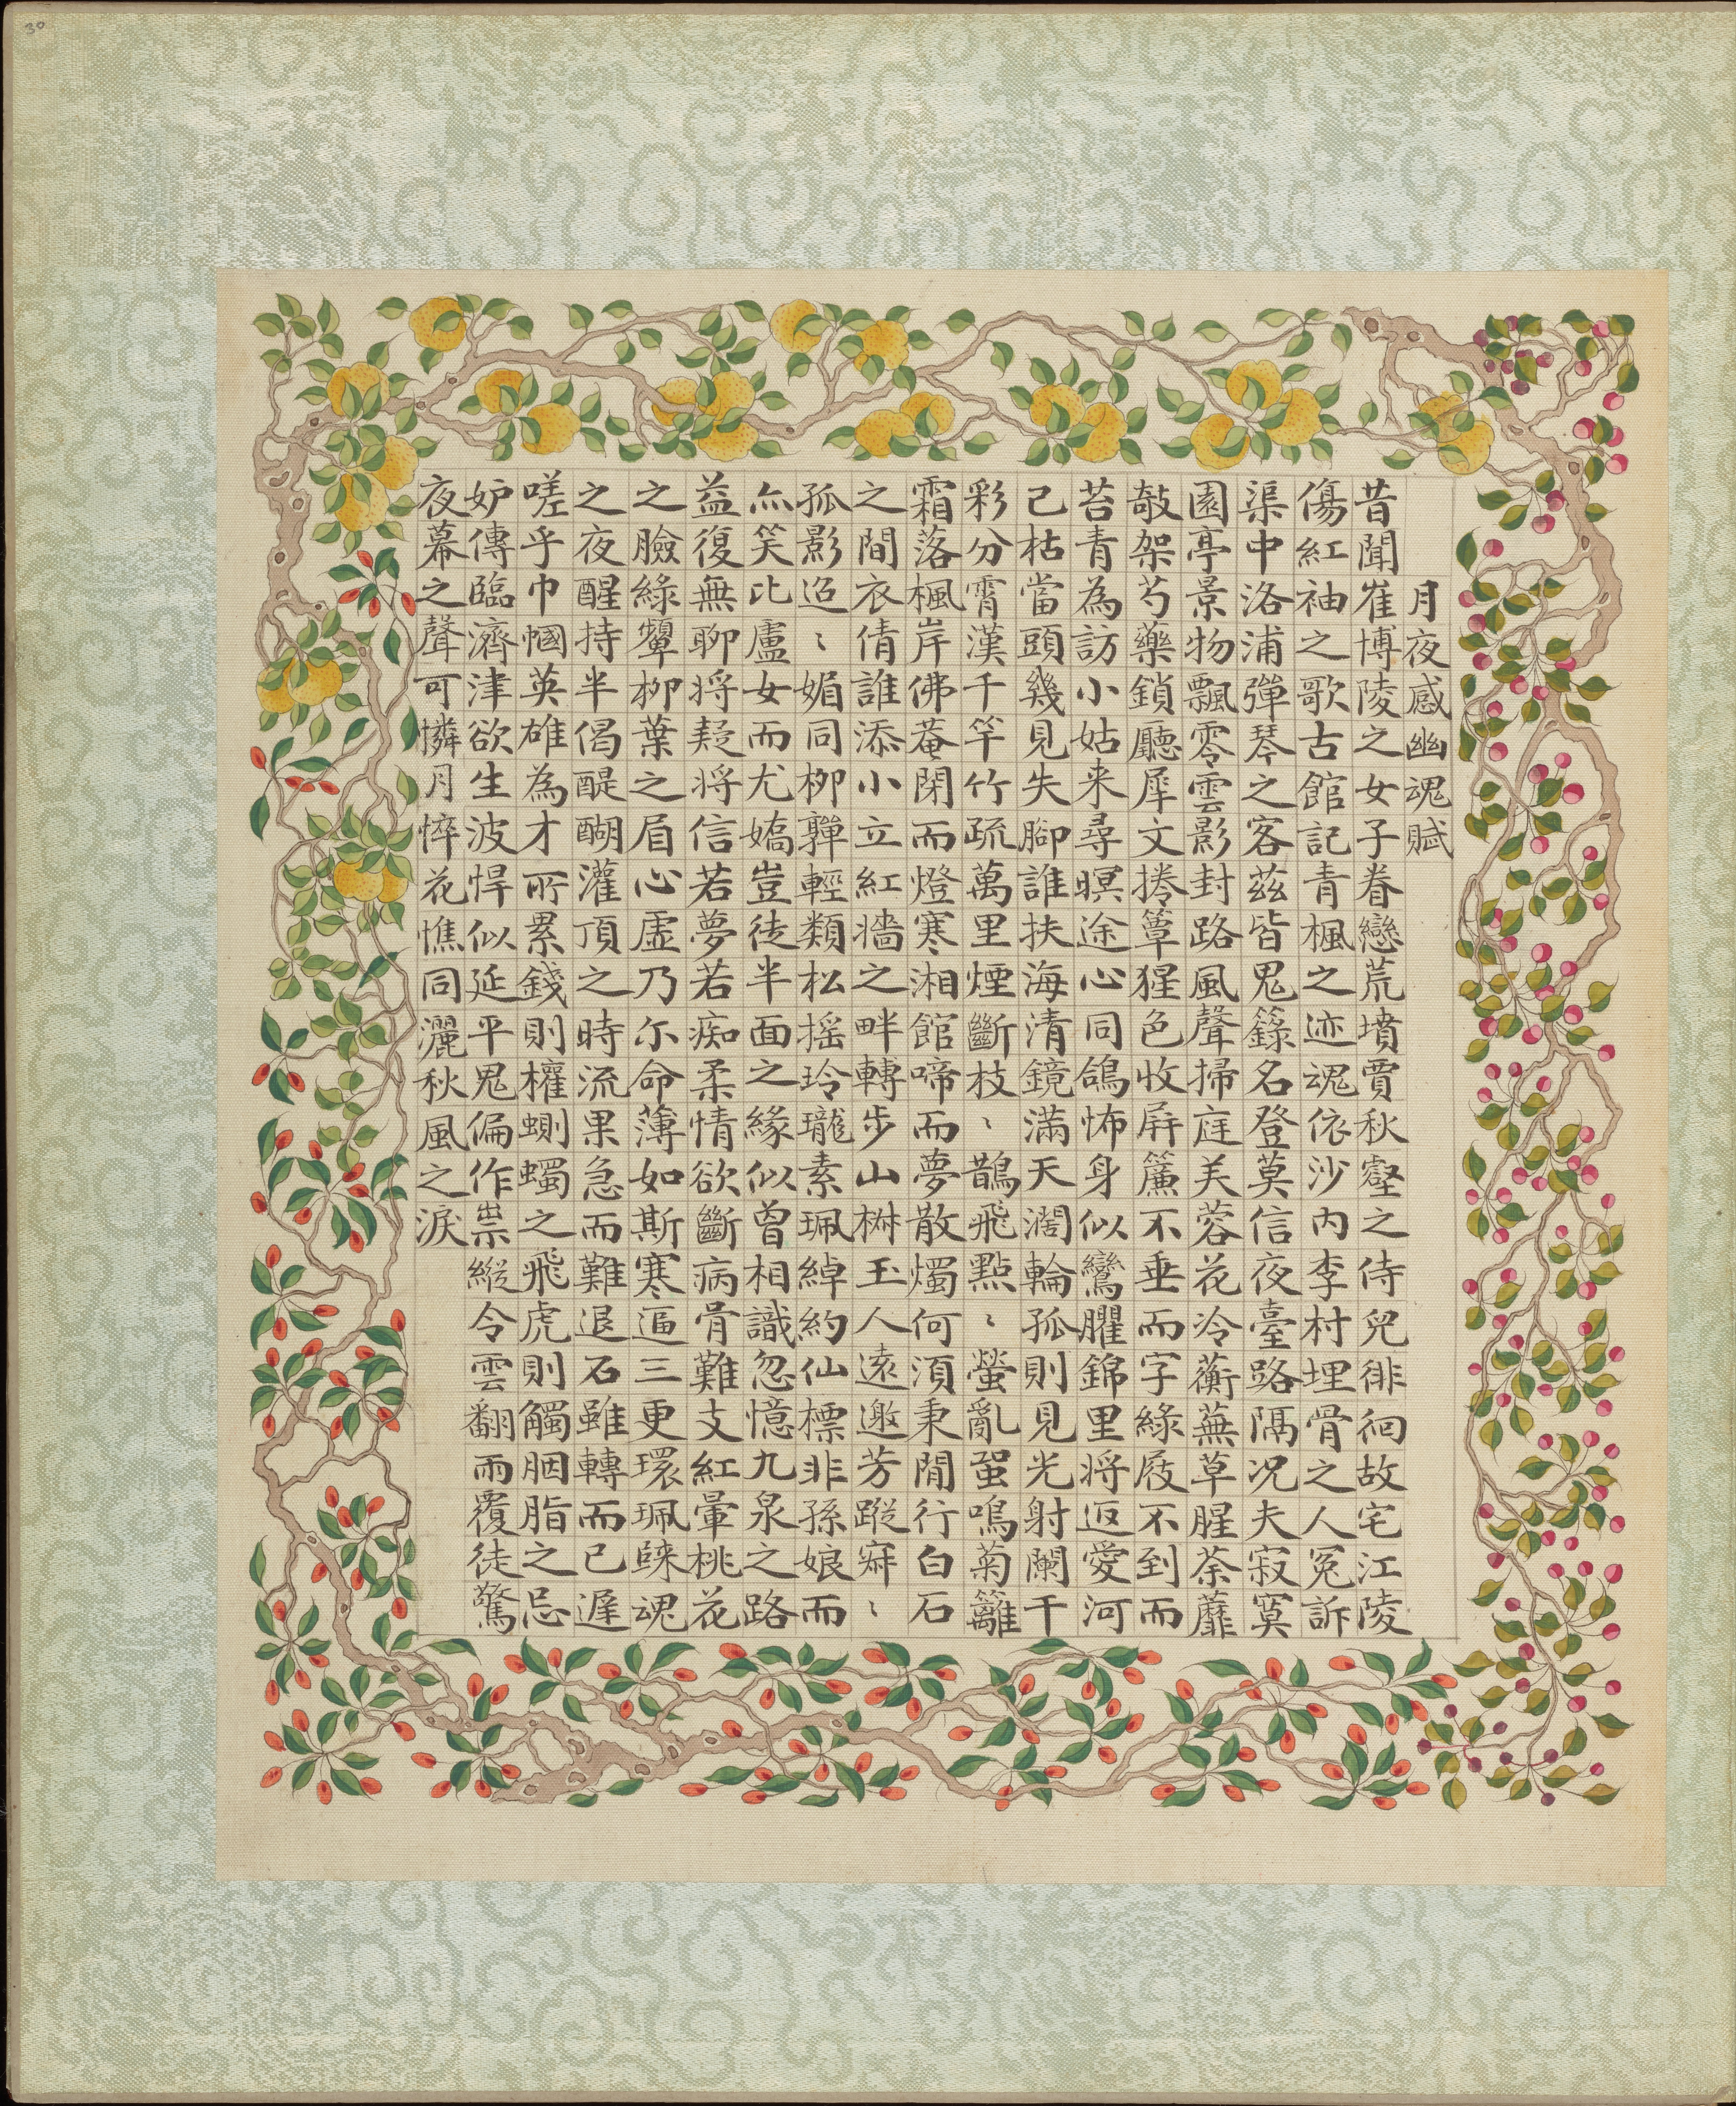 30
月夜感幽魂賦
昔聞崔博陵之女子眷戀荒墳賈秋壑之侍兒徘徊故宅江陵
傷紅袖之歌古館記青楓之迹魂依沙內李村埋骨之人冤訴
渠中洛浦彈琴之客茲皆鬼籙名登莫信夜臺路隔況夫寂寞
園亭景物飄零雲影封路風聲掃庭芙蓉花冷蘅蕪草腥荼蘼
敧架芍藥鎖廳犀文捲簟猩色收屏簾不垂而字綠屐不到而
苔青為訪小姑来尋暝途心同鴿怖身似鸞臞錦里將返愛河
已枯當頭幾見失腳誰扶海清鏡滿天濶輪孤則見光射闌干
彩分霄漢千竿竹疏萬里煙斷枝〻鵲飛點〻螢亂蛩鳴菊籬
霜落楓岸佛菴閉而燈寒湘館啼而夢散燭何須秉閒行白石
之間衣倩誰添小立紅墻之畔轉步山榭玉人遠邀芳蹤寂〻
孤影迢〻媚同柳嚲輕類松搖玲瓏素珮綽約仙標非孫娘而
亦笑比盧女而尤嬌豈徒半面之緣似曾相識忽憶九泉之路
益復無聊將疑將信若夢若痴柔情欲斷病骨難支紅暈桃花
之臉綠顰柳葉之眉心虛乃尔命薄如斯寒逼三更環珮歸魂
之夜醒持半偈醍醐灌頂之時流果急而難退石雖轉而已遲
嗟乎巾幗英雄為才所累錢則權蝍蠋之飛虎則觸胭脂之忌
妒傳臨濟津欲生波悍似延平鬼偏作祟縱令雲翻雨覆徒驚
夜幕之聲可憐月悴花憔同灑秋風之淚